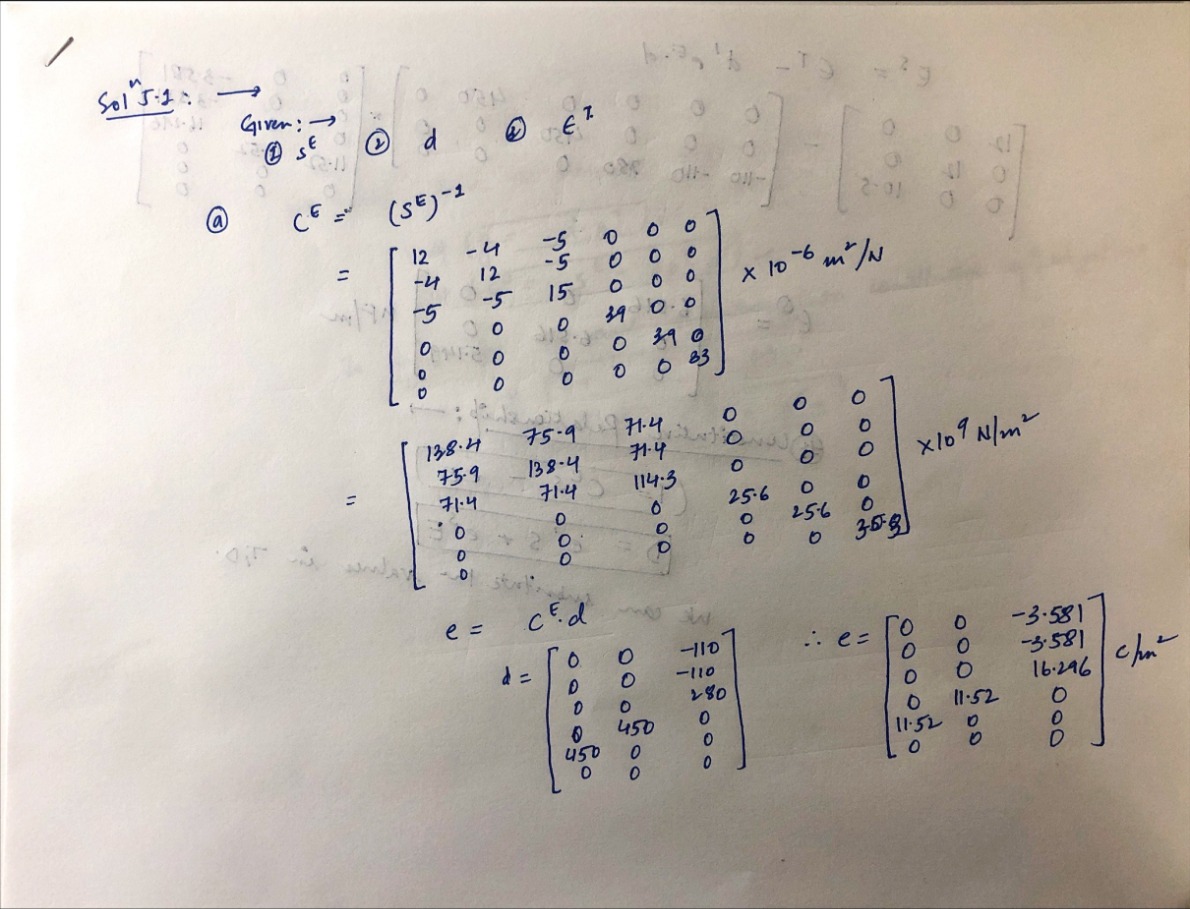 Solⁿ 5.1: →
Given: →
① sᴱ ② d ② ϵᵀ
ⓐ Cᴱ = (Sᴱ)⁻¹
= [ 12 -4 -5 0 0 0
-4 12 -5 0 0 0
-5 -5 15 0 0 0
0 0 0 39 0 0
0 0 0 0 39 0
0 0 0 0 0 33 ] × 10⁻⁶ m²/N
= [ 138.4 75.9 71.4 0 0 0
75.9 138.4 71.4 0 0 0
71.4 71.4 114.3 0 0 0
0 0 0 25.6 0 0
0 0 0 0 25.6 0
0 0 0 0 0 ] ×10⁹ N/m²
e = Cᴱ.d
d = [ 0 0 -110
0 0 -110
0 0 280
0 450 0
450 0 0
0 0 0 ]
∴ e = [ 0 0 -3.581
0 0 -3.581
0 0 16.296
0 11.52 0
11.52 0 0
0 0 0 ] C/m²